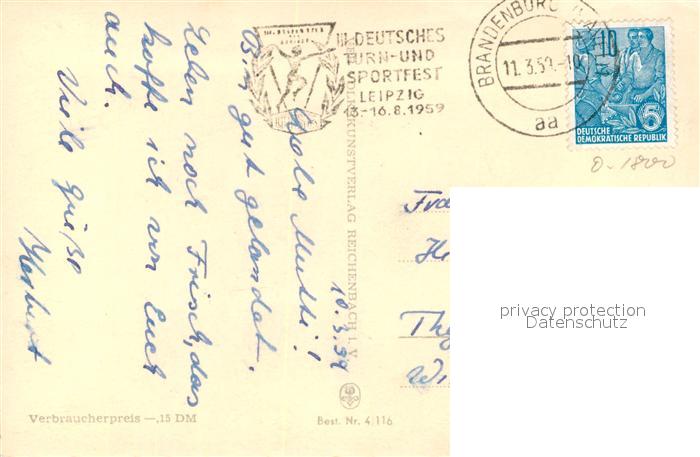 III. DEUTSCHES
TURN-UND
SPORTFEST
LEIPZIG
13.-16.8.1959
BRANDENBURG
11.3.59.-10
aa
10
5
DEUTSCHE
DEMOKRATISCHE REPUBLIK
0-1800
10.3.59
Liebe Mutti!
Bin gut gelandet.
Leben noch Frisch, das
hoffe ich von Euch
auch.
Viele Grüße
Herbert
KUNSTVERLAG REICHENBACH I. V.
Verbraucherpreis —,15 DM
Best. Nr. 4/116
privacy protection
Datenschutz